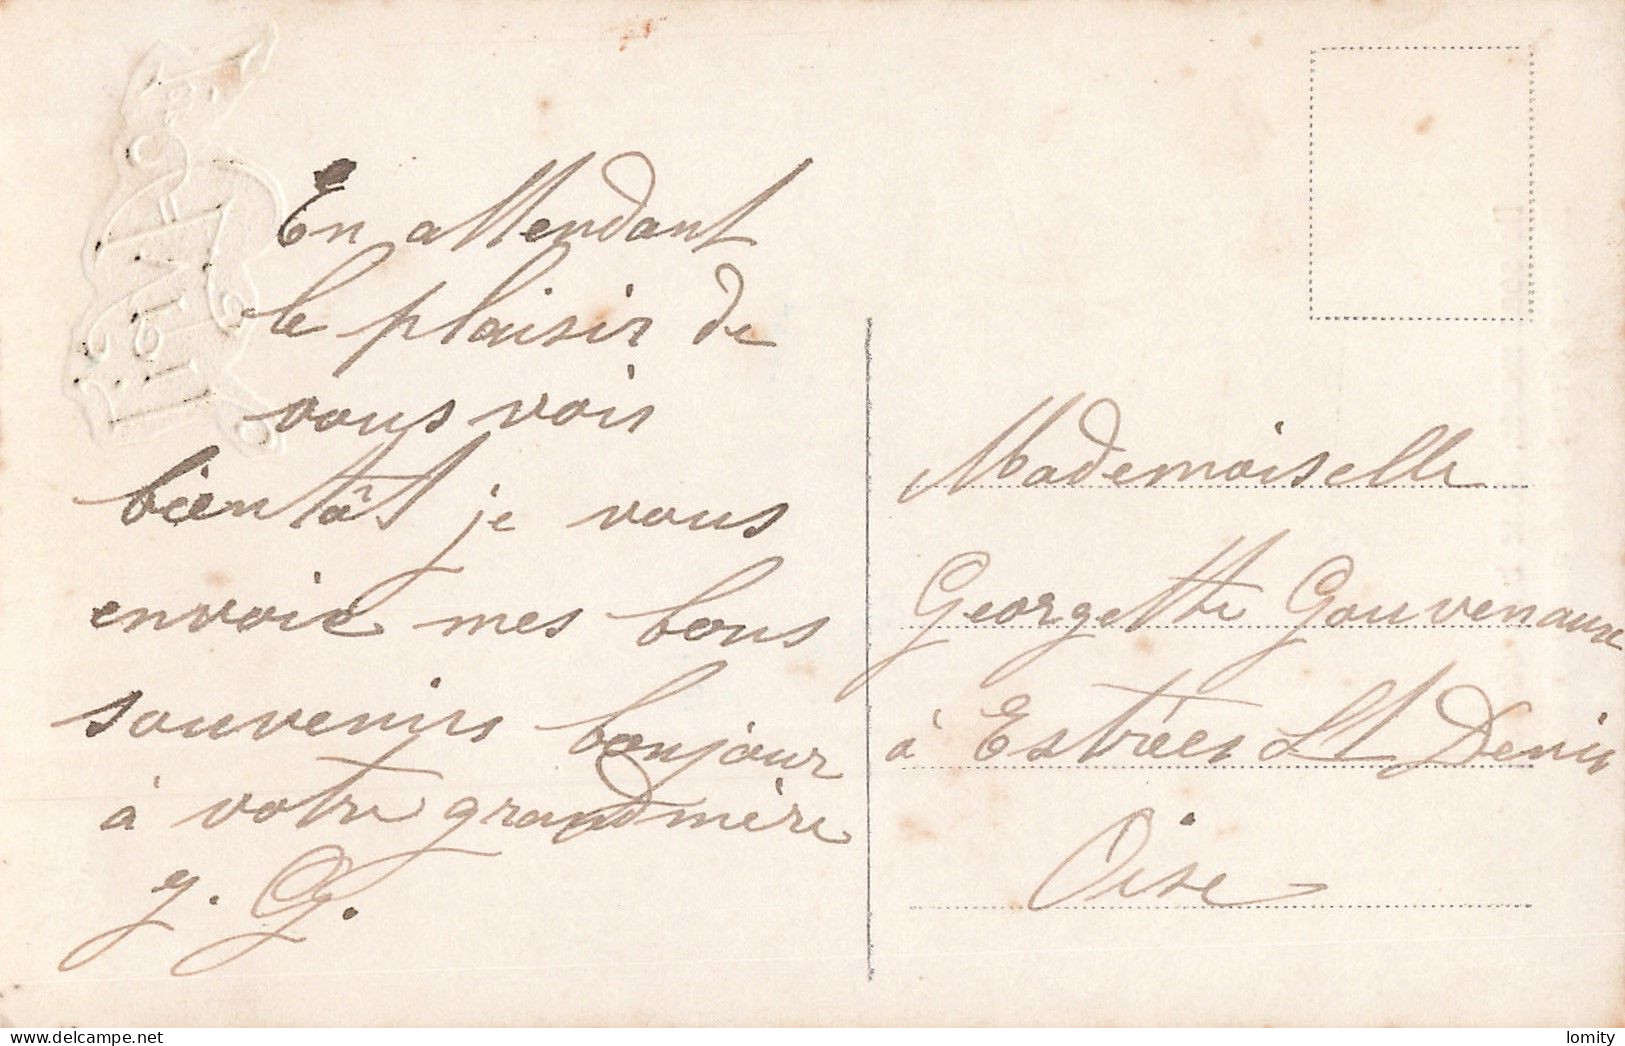 En attendant
le plaisir de
vous voir
bientôt je vous
envoie mes bons
souvenirs bonjour
à votre grandmère
y. G.
Mademoiselle
Georgette Gouvenaux
à Estrées St Denis
Oise
delcampe.net
lomity